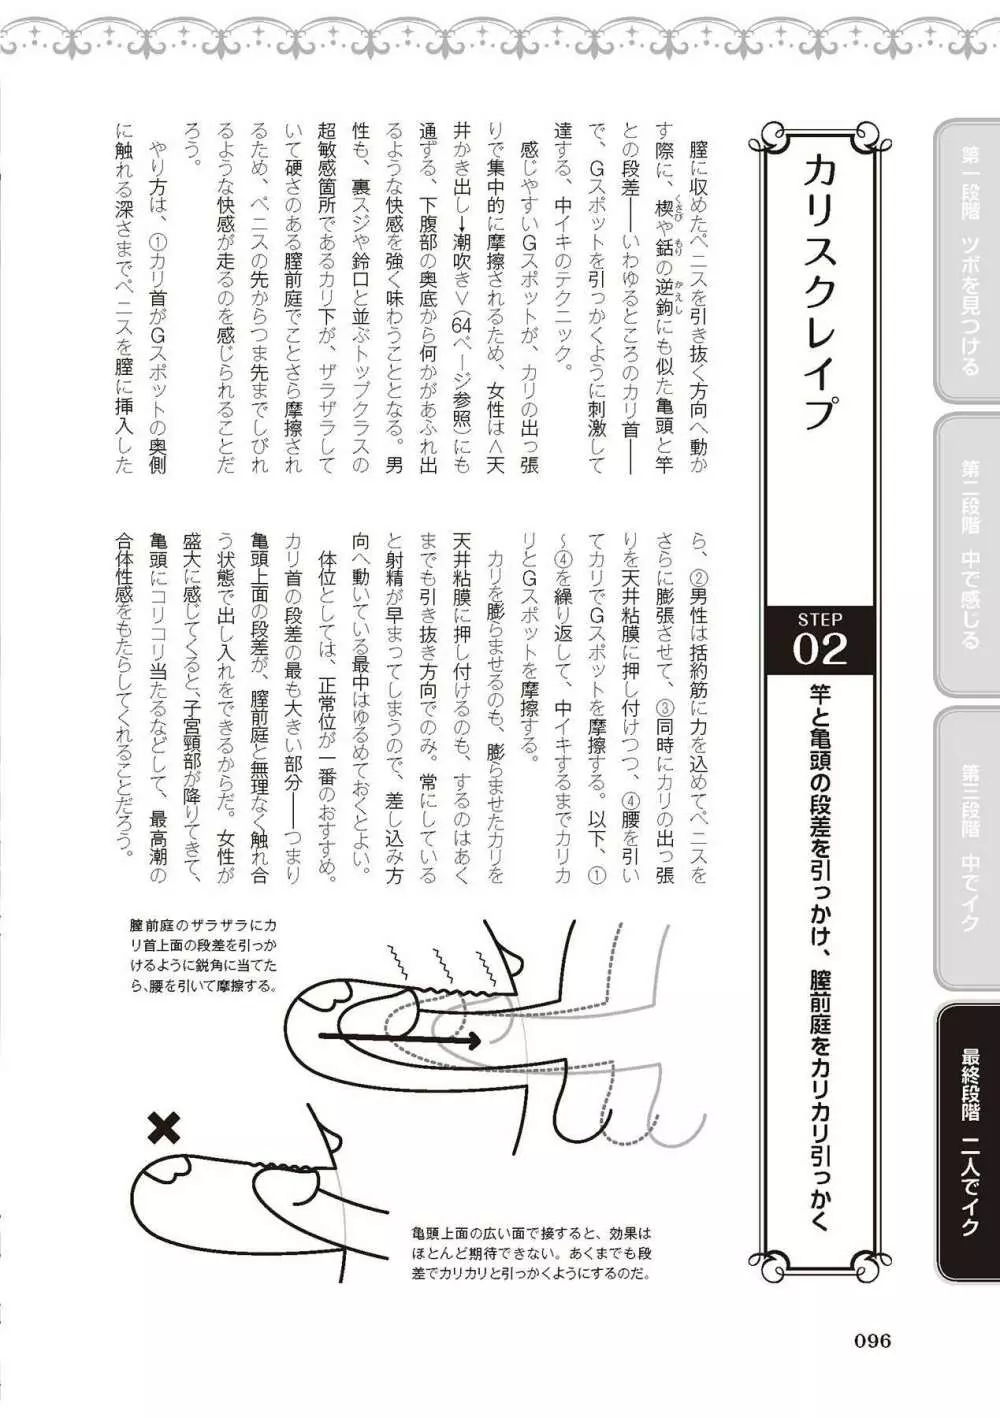 第一段階 ツボを見つける
第二段階 中で感じる
第三段階 中でイク
最終段階 二人でイク
カリスクレイプ
STEP
02
竿と亀頭の段差を引っかけ、膣前庭をカリカリ引っかく
膣に収めたペニスを引き抜く方向へ動か
す際に、楔や銛の逆鉤にも似た亀頭と竿
くさび もり かえし
との段差――いわゆるところのカリ首――
で、Gスポットを引っかくように刺激して
達する、中イキのテクニック。
感じやすいGスポットが、カリの出っ張
りで集中的に摩擦されるため、女性は<天
井かき出し→潮吹き>(64ページ参照)にも
通ずる、下腹部の奥底から何かがあふれ出
るような快感を強く味わうこととなる。男
性も、裏スジや鈴口と並ぶトップクラスの
超敏感箇所であるカリ下が、ザラザラして
いて硬さのある膣前庭でことさら摩擦され
るため、ペニスの先からつま先までしびれ
るような快感が走るのを感じられることだ
ろう。
やり方は、①カリ首がGスポットの奥側
に触れる深さまでペニスを膣に挿入した
ら、②男性は括約筋に力を込めてペニスを
さらに膨張させて、③同時にカリの出っ張
りを天井粘膜に押し付けつつ、④腰を引い
てカリでGスポットを摩擦する。以下、①
～④を繰り返して、中イキするまでカリカ
リとGスポットを摩擦する。
カリを膨らませるのも、膨らませたカリを
天井粘膜に押し付けるのも、するのはあく
までも引き抜き方向でのみ。常にしている
と射精が早まってしまうので、差し込み方
向へ動いている最中はゆるめておくとよい。
体位としては、正常位が一番のおすすめ。
カリ首の段差の最も大きい部分――つまり
亀頭上面の段差が、膣前庭と無理なく触れ合
う状態で出し入れをできるからだ。女性が
盛大に感じてくると、子宮頸部が降りてきて、
亀頭にコリコリ当たるなどして、最高潮の
合体性感をもたらしてくれることだろう。
膣前庭のザラザラにカ
リ首上面の段差を引っか
けるように鋭角に当てた
ら、腰を引いて摩擦する。
亀頭上面の広い面で接すると、効果は
ほとんど期待できない。あくまでも段
差でカリカリと引っかくようにするのだ。
096